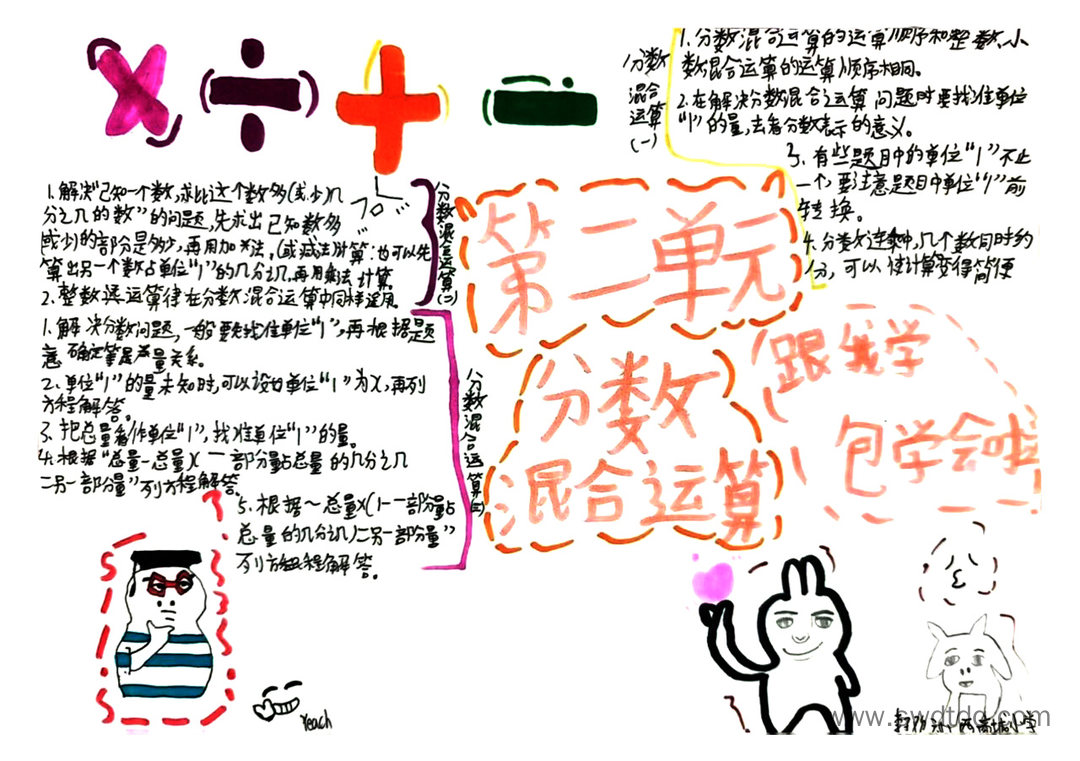 × ÷ + −
分数
混合
运算
(一)
1.分数混合运算的运算顺序和整数、小
数混合运算的运算顺序相同。
2.在解决分数混合运算问题时要找准单位
“1”的量,去看分数表示的意义。
3.有些题目中的单位“1”不止
一个,要注意题目中单位“1”前
转换。
4.分数连乘中,几个数同时约
分,可以使计算变得简便
分数混合运算(二)
1.解决“已知一个数,求比这个数多(或少)几
分之几的数”的问题,先求出已知数多
(或少)的部分是多少,再用加法。(或减法)计算:也可以先
算出另一个数占单位“1”的几分之几,再用乘法计算。
2.整数运算律在分数混合运算中同样适用。
分数混合运算(三)
1.解决分数问题,一般要找准单位“1”,再根据题
意确定等量关系。
2.单位“1”的量未知时,可以设单位“1”为x,再列
方程解答。
3.把总量看作单位“1”,找准单位“1”的量。
4.根据“总量-总量×一部分量占总量的几分之几
=另一部分量”列方程解答
5.根据~总量×(1-一部分量占
总量的几分之几)=另一部分量”
列方程解答。
第二单元
分数
混合运算
跟我学
包学会啦
Yeach
www.swdtdq.com